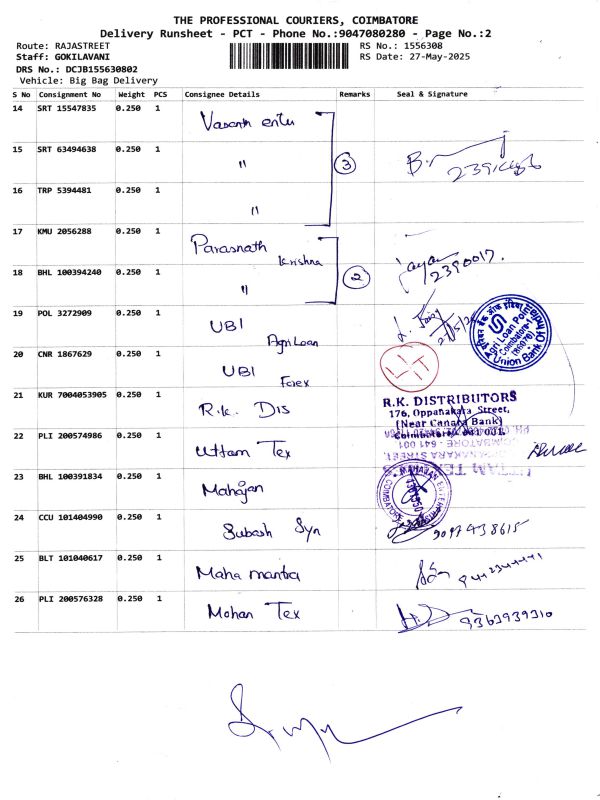 THE PROFESSIONAL COURIERS, COIMBATORE
Delivery Runsheet - PCT - Phone No.:9047080280 - Page No.:2
Route: RAJASTREET
RS No.: 1556308
Staff: GOKILAVANI
RS Date: 27-May-2025
DRS No.: DCJB155630802
Vehicle: Big Bag Delivery
S No Consignment No Weight PCS Consignee Details Remarks Seal & Signature
14 SRT 15547835 0.250 1 Vasanth enter
15 SRT 63494638 0.250 1 " 3
16 TRP 5394481 0.250 1 "
17 KMU 2056288 0.250 1 Parasnath Krishna
18 BHL 100394240 0.250 1 " 2 2390017.
19 POL 3272909 0.250 1 UBI Agri Loan
20 CNR 1867629 0.250 1 UBI Forex
Agri Loan Point
Coimbatore-1
Union Bank Of India
21 KUR 7004053905 0.250 1 R.K. Dis
R.K. DISTRIBUTORS
176, Oppanakara Street,
(Near Canara Bank)
Coimbatore - 641 001.
22 PLI 200574986 0.250 1 Uttam Tex
UTTAM TEX
COIMBATORE - 641 001
23 BHL 100391834 0.250 1 Mahajan
COIMBATORE
24 CCU 101404990 0.250 1 Subash Syn 9097438615
25 BLT 101040617 0.250 1 Maha mantra
26 PLI 200576328 0.250 1 Mohan Tex 9363939310